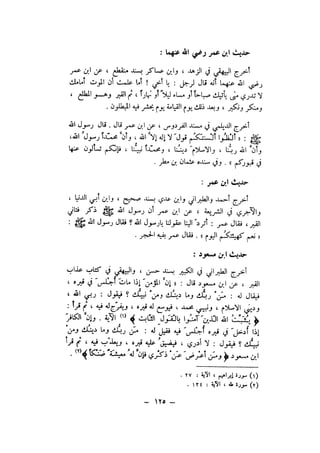 حديث ابن عمر رضي الله عنهما :
أخرج البيهقي في الزهد ، وابن عساكر بسند منقطع ، عن ابن عمر
رضي الله عنهما أنه قال لرجل : يا أخي ! أما علمت أن الموت أمامك
لا تدري متى يأتيك صباحاً أو مساء أو ليلاً أو نهاراً ، ثم القبر وهو المطلع ،
ومنكر ونكير ، وبعد ذلك يوم القيامة يوم يحشر فيه المبطلون .
أخرج الديلمي في مسند الفردوس ، عن ابن عمر قال . قال رسول الله
ﷺ : « ألظوا ألسنتكم قول لا إله إلا الله ، وأن محمداً رسول الله ،
وأن الله ربنا ، والإسلام ديننا ، ومحمداً نبينا ، فإنكم تسألون عنها
في قبوركم » . وفي سنده عثمان بن مطر .
حديث ابن عمر :
أخرج أحمد والطبراني وابن عدي بسند صحيح ، وابن أبي الدنيا ،
والآجري في الشريعة ، عن ابن عمر أن رسول الله ﷺ ذكر فتاني
القبر ، فقال عمر : أترد إلينا عقولنا يا رسول الله ؟ فقال رسول الله ﷺ :
« نعم كهيئتكم اليوم » . فقال عمر بفيه الحجر .
حديث ابن مسعود :
أخرج الطبراني في الكبير بسند حسن ، والبيهقي في كتاب عذاب
القبر ، عن ابن مسعود قال : « إن المؤمن إذا مات أجلس في قبره ،
فيقال له : من ربك وما دينك ومن نبيك ؟ فيقول : ربي الله ،
وديني الإسلام ، ونبيي محمد ، فيوسع له قبره ، ويفرج له فيه ، ثم قرأ :
﴿ يثبت الله الذين آمنوا بالقول الثابت ﴾ (١) الآية . وإن الكافر
إذا أدخل في قبره أجلس فيه فقيل له : من ربك وما دينك ومن
نبيك ؟ فيقول : لا أدري ، فيضيق عليه قبره ، ويعذب فيه ، ثم قرأ
ابن مسعود ﴿ ومن أعرض عن ذكري فإن له معيشة ضنكاً ﴾ (٢) .
(١) سورة إبراهيم ، الآية : ٢٧ .
(٢) سورة طه ، الآية : ١٢٤ .
– ١٢٥ –